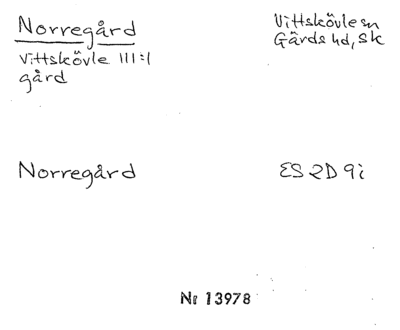 Norregård
Vittskövle sn
Gärds hd, Sk
Vittskövle III:1
gård
Norregård
ES 2D 9i
Nr 13978